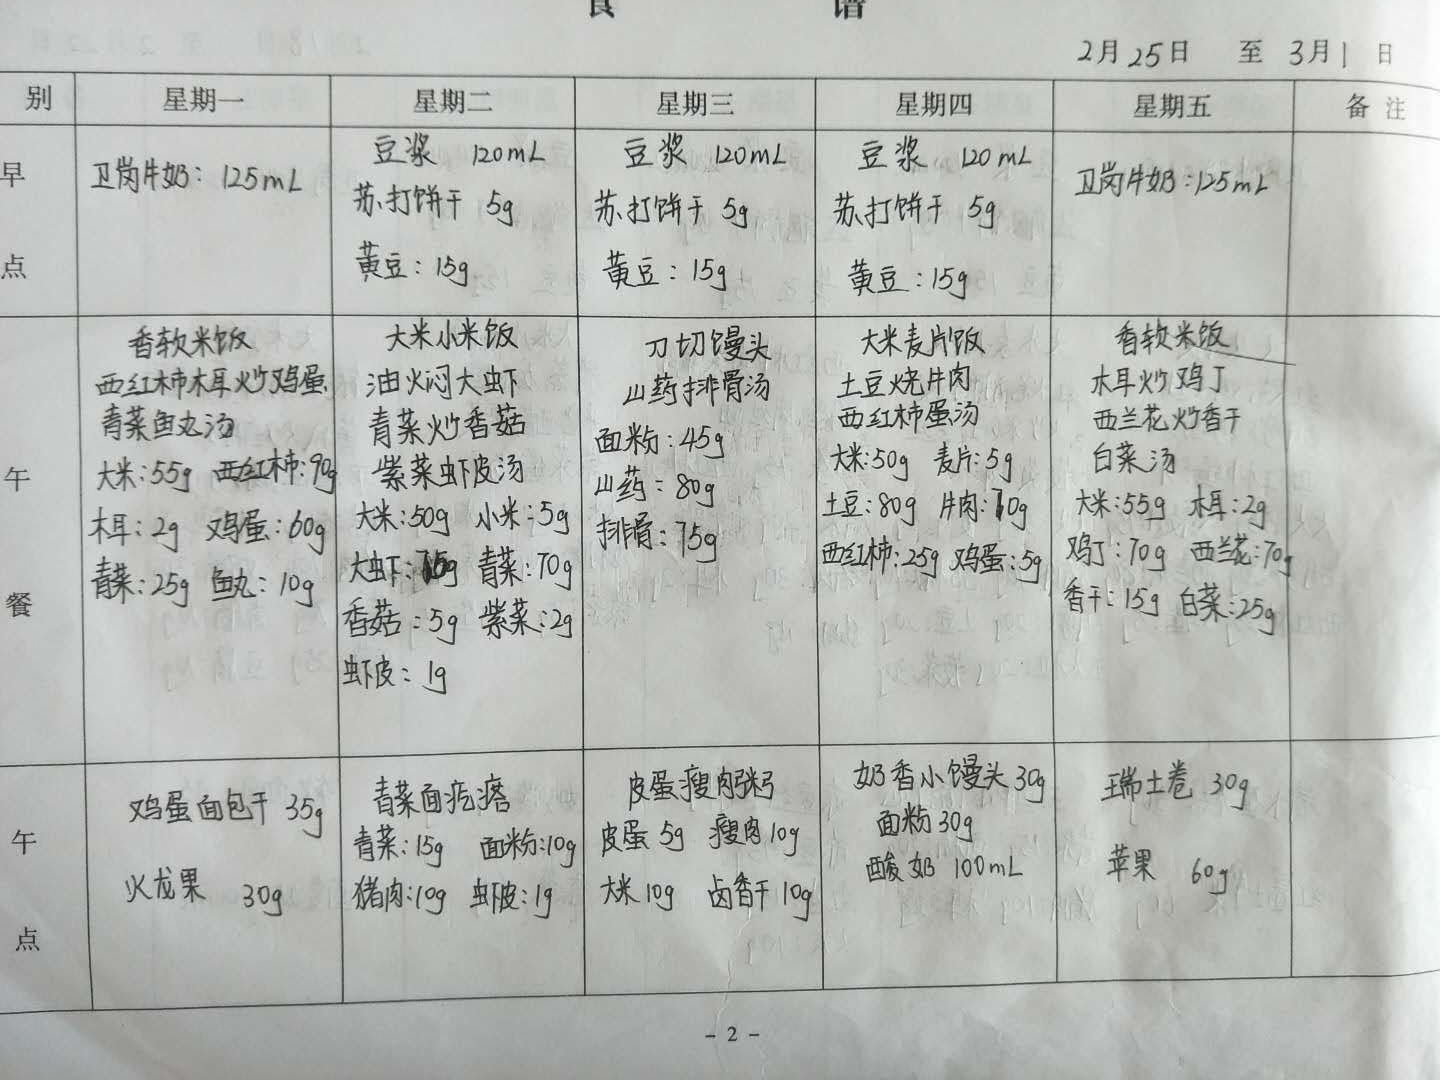 食 谱
2月25日 至 3月1日
别 星期一 星期二 星期三 星期四 星期五 备注
早点
卫岗牛奶: 125mL
豆浆 120mL
苏打饼干 5g
黄豆: 15g
豆浆 120mL
苏打饼干 5g
黄豆: 15g
豆浆 120mL
苏打饼干 5g
黄豆: 15g
卫岗牛奶: 125mL
午餐
香软米饭
西红柿木耳炒鸡蛋
青菜鱼丸汤
大米: 55g 西红柿: 90g
木耳: 2g 鸡蛋: 60g
青菜: 25g 鱼丸: 10g
大米小米饭
油焖大虾
青菜炒香菇
紫菜虾皮汤
大米: 50g 小米: 5g
大虾: 青菜: 70g
香菇: 5g 紫菜: 2g
虾皮: 1g
刀切馒头
山药排骨汤
面粉: 45g
山药: 80g
排骨: 75g
大米麦片饭
土豆烧牛肉
西红柿蛋汤
大米: 50g 麦片: 5g
土豆: 80g 牛肉:
西红柿: 25g 鸡蛋: 5g
香软米饭
木耳炒鸡丁
西兰花炒香干
白菜汤
大米: 55g 木耳: 2g
鸡丁: 70g 西兰花: 70g
香干: 15g 白菜: 25g
午点
鸡蛋面包干 35g
火龙果 30g
青菜面疙瘩
青菜: 15g 面粉: 10g
猪肉: 10g 虾皮: 1g
皮蛋瘦肉粥
皮蛋 5g 瘦肉 10g
大米 10g 卤香干 10g
奶香小馒头 30g
面粉 30g
酸奶 100mL
瑞士卷 30g
苹果 60g
- 2 -